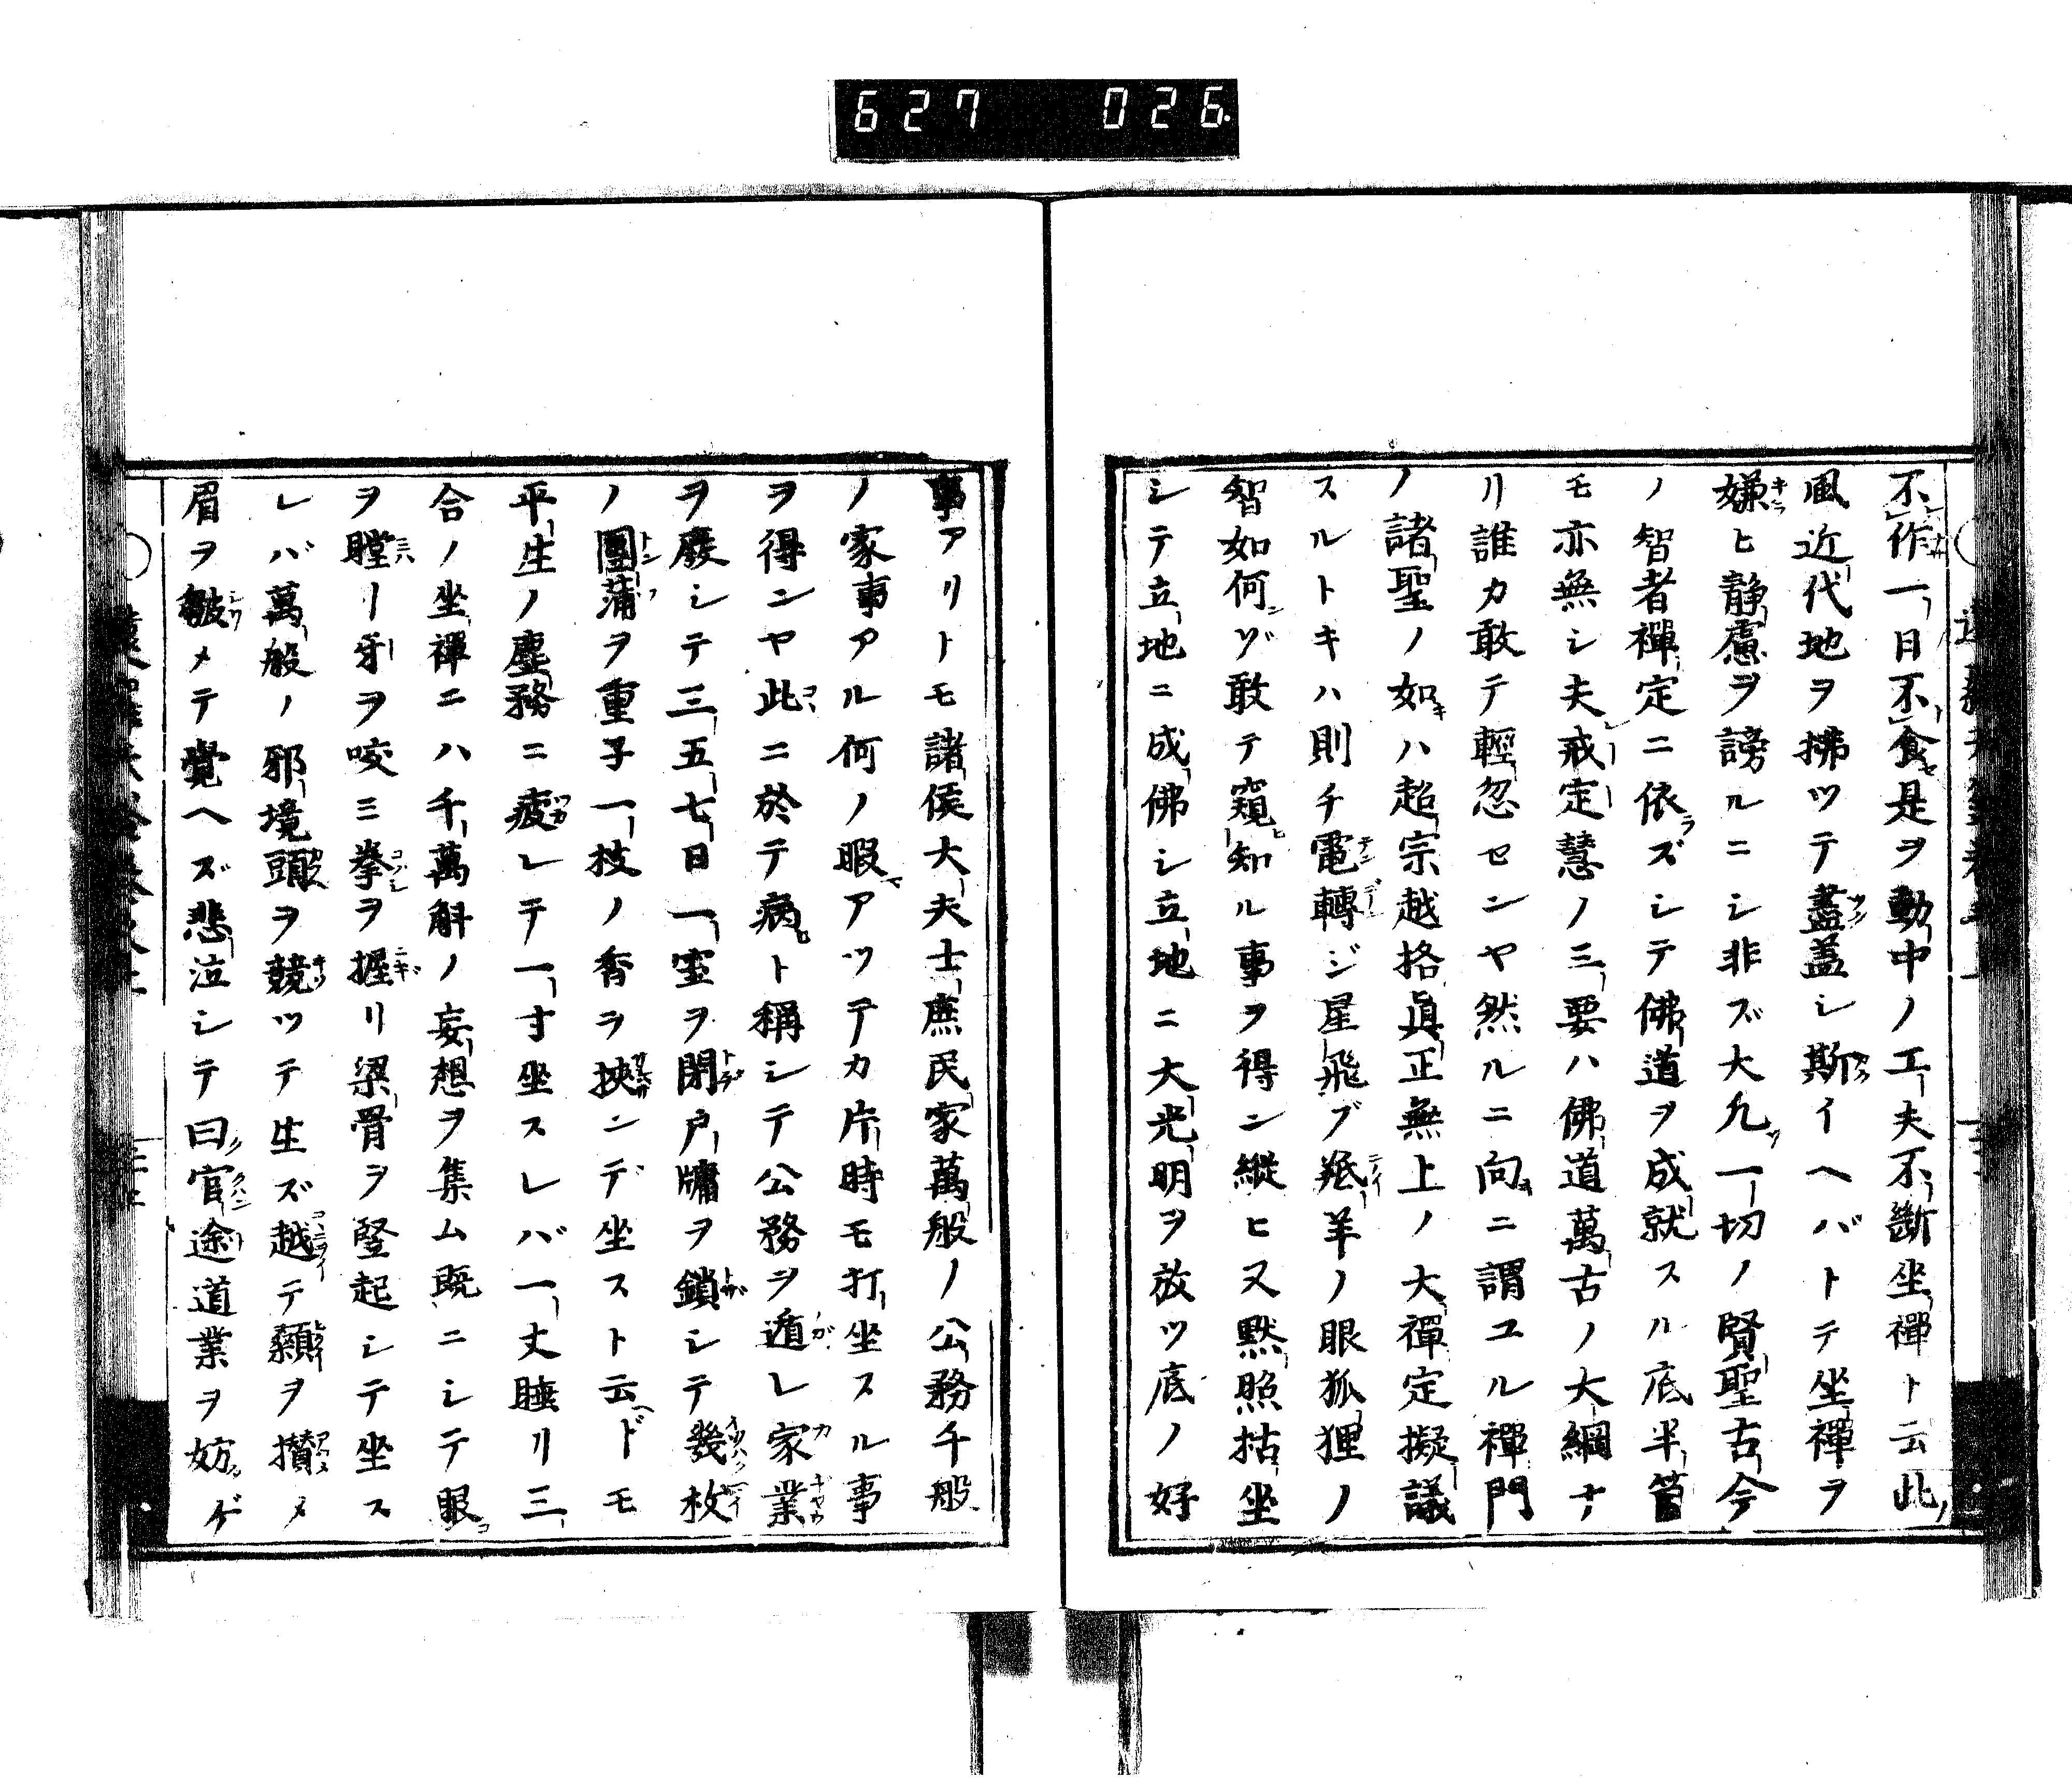 627 026
不作一日不食是ヲ動中ノ工夫不断坐禪ト云此
風近代地ヲ拂ツテ盡盖シ斯イヘバトテ坐禪ヲ
嫌ヒ静慮ヲ謗ルニシ非ズ大凢一切ノ賢聖古今
ノ智者禪定ニ依ズシテ佛道ヲ成就スル底半箇
モ亦無シ夫戒定慧ノ三要ハ佛道萬古ノ大綱ナ
リ誰カ敢テ輕忽センヤ然ルニ向ニ謂ユル禪門
ノ諸聖ノ如ハ超宗越格眞正無上ノ大禪定擬議
スルトキハ則チ電轉ジ星飛ブ羝羊ノ眼狐狸ノ
智如何ヅ敢テ窺知ル事ヲ得ン縦ヒ又黙照枯坐
シテ立地ニ成佛シ立地ニ大光明ヲ放ツ底ノ好
事アリトモ諸侯大夫士庶民家萬般ノ公務千般
ノ家事アル何ノ暇アツテカ片時モ打坐スル事
ヲ得ンヤ此ニ於テ病ト稱シテ公務ヲ遁レ家業
ヲ廢シテ三五七日一室ヲ閉戸牖ヲ鎖シテ幾枚
ノ團蒲ヲ重子一枝ノ香ヲ挾ンデ坐スト云ドモ
平生ノ塵務ニ疲レテ一寸坐スレバ一丈睡リ三
合ノ坐禪ニハ千萬斛ノ妄想ヲ集ム既ニシテ眼
ヲ瞠リ牙ヲ咬ミ拳ヲ握リ梁骨ヲ竪起シテ坐ス
レバ萬般ノ邪境頭ヲ競ツテ生ズ越テ顙ヲ攅メ
眉ヲ皺メテ覺ヘズ悲泣シテ曰官途道業ヲ妨ゲ